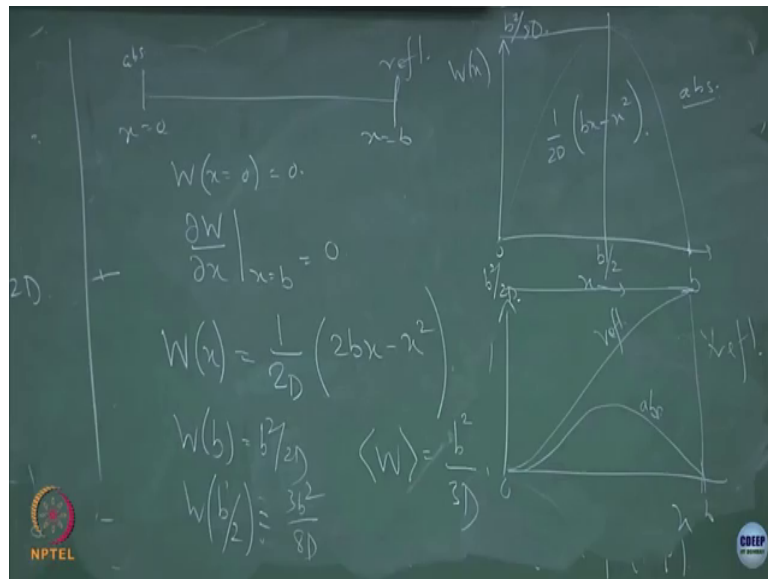 abs
refl.
x=0
x=b
W(x=0) = 0.
∂W/∂x |x=b = 0
2D.
W(x) = 1/2D (2bx-x²)
W(b) = b²/2D
W(b/2) = 3b²/8D
⟨W⟩ = b²/3D
W(x)
1/2D (bx-x²).
abs.
0
b/2
x
b
b²/2D.
refl.
abs
refl.
0
b
NPTEL
CDEEP